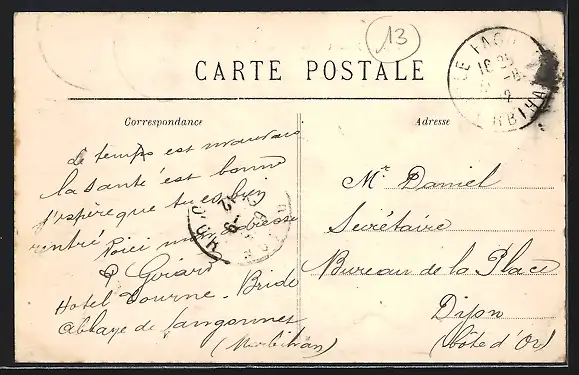 13
CARTE POSTALE
Correspondance
Adresse
Le temps est mauvais
la santé est bonne
j'espère que tu es bien
rentré Voici mon adresse
P Girard
Hotel Tourne-Bride
Abbaye de Langonnet
(Morbihan)
Mr Daniel
Secrétaire
Bureau de la Place
Dijon
(Côte d'Or)
LE FAOU
16 25